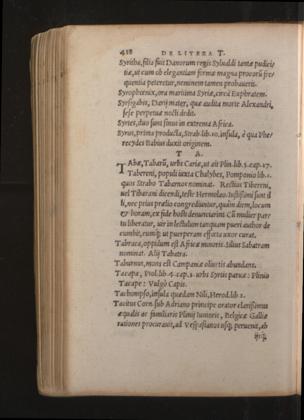 418 DE LITERA T.
Syritha, filia fuit Danorum regis Sybaldi tantæ pudici
tiæ, ut cum ob elegantiam formæ magna procorũ fre
quentia peteretur, neminem tamen probauerit.
Syrophœnix, ora maritima Syriæ, circa Euphratem.
Sysigabis, Darij mater, quæ audita morte Alexandri,
sese perpetuæ nocti dedit.
Syrtes, duo sunt sinus in extrema Africa.
Syrus, prima producta, Strab. lib. 10. insula, è qua Phe-
recydes Babius duxit originem.
T A.
TAbæ, Tabarũ, urbs Cariæ, ut ait Plin. lib. 5. cap. 27.
Tabereni, populi iuxta Chalybes, Pomponio lib. 1.
quos Strabo Tabarnos nominat. Rectius Tibereni,
uel Tibarani dicendi, teste Hermolao. Iustissimi sunt il
li, nec prius prælio congrediuntur, quàm diem, locum
& horam, ex fide hosti denunciarint. Cũ mulier par
tu liberatur, uir in lectulum tanquam puerì author de
cumbit, eumq́; ut puerperam effœta uxor curat.
Tabraca, oppidum est Africæ minoris. Silius Sabatram
nominat. Alij Tabatra.
Taburnus, mons est Campaniæ oliuetis abundans.
Tacapa, Ptol. lib. 4. cap. 3. urbs Syrtis paruæ: Plinio
Tacape: Vulgò Capis.
Tachompso, insula quædam Nili, Herod. lib. 2.
Tacitus Corn. sub Adriano principe orator clarissimus
æqualis ac familiaris Plinij Iunioris, Belgicæ Galliæ
rationes procurauit, ad Vespasianos usq́; peruenit, ab